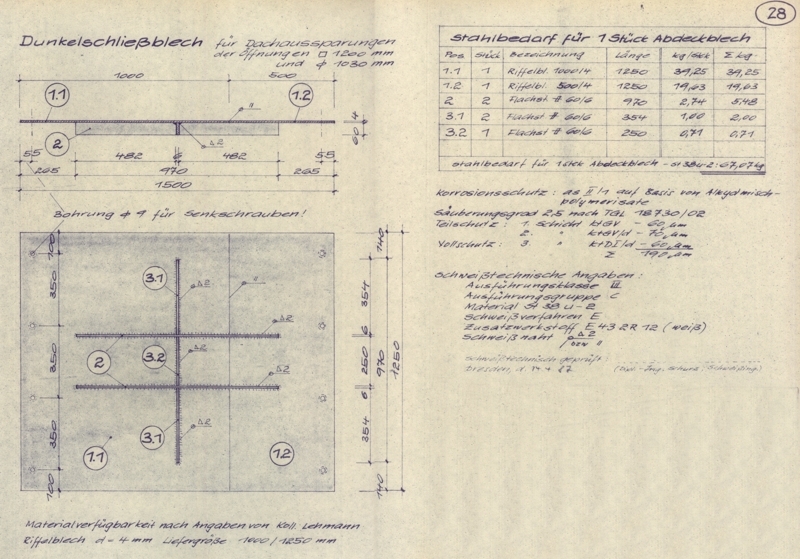 28
Dunkelschließblech für Dachaussparungen
der Öffnungen □ 1200 mm
und ϕ 1030 mm
1000 500
1.1 1.2
2
Δ2
4
60
55 482 6 482 55
265 970 265
1500
Bohrung ϕ 9 für Senkschrauben!
100 140
3.1 Δ2 "
350 354
Δ2 Δ2
6
2 3.2 Δ2
350 250 970 1250
Δ2 Δ2
6
3.1 Δ2
350 354
1.1 1.2
100 140
Materialverfügbarkeit nach Angaben von Koll. Lehmann
Riffelblech d = 4 mm Liefergröße 1000/1250 mm
Stahlbedarf für 1 Stück Abdeckblech
Pos Stück Bezeichnung Länge kg/Stck Σ kg
1.1 1 Riffelbl. 1000/4 1250 39,25 39,25
1.2 1 Riffelbl. 500/4 1250 19,63 19,63
2 2 Flachst # 60/6 970 2,74 5,48
3.1 2 Flachst # 60/6 354 1,00 2,00
3.2 1 Flachst # 60/6 250 0,71 0,71
Stahlbedarf für 1 Stck Abdeckblech - St 38u-2: 67,07 kg
Korrosionsschutz: as II/1 auf Basis von Alkydmisch-
polymerisate
Säuberungsgrad 2,5 nach TGL 18730/02
Teilschutz: 1. Schicht ktGV - 60 µm
2. " ktGV/d - 70 µm
Vollschutz: 3. " ktDI/d - 60 µm
Σ 190 µm
Schweißtechnische Angaben:
Ausführungsklasse III
Ausführungsgruppe C
Material St 38 u-2
Schweißverfahren E
Zusatzwerkstoff E 43 2R 12 (weiß)
Schweißnaht Δ2
bzw "
Schweißtechnisch geprüft:
Dresden, d.